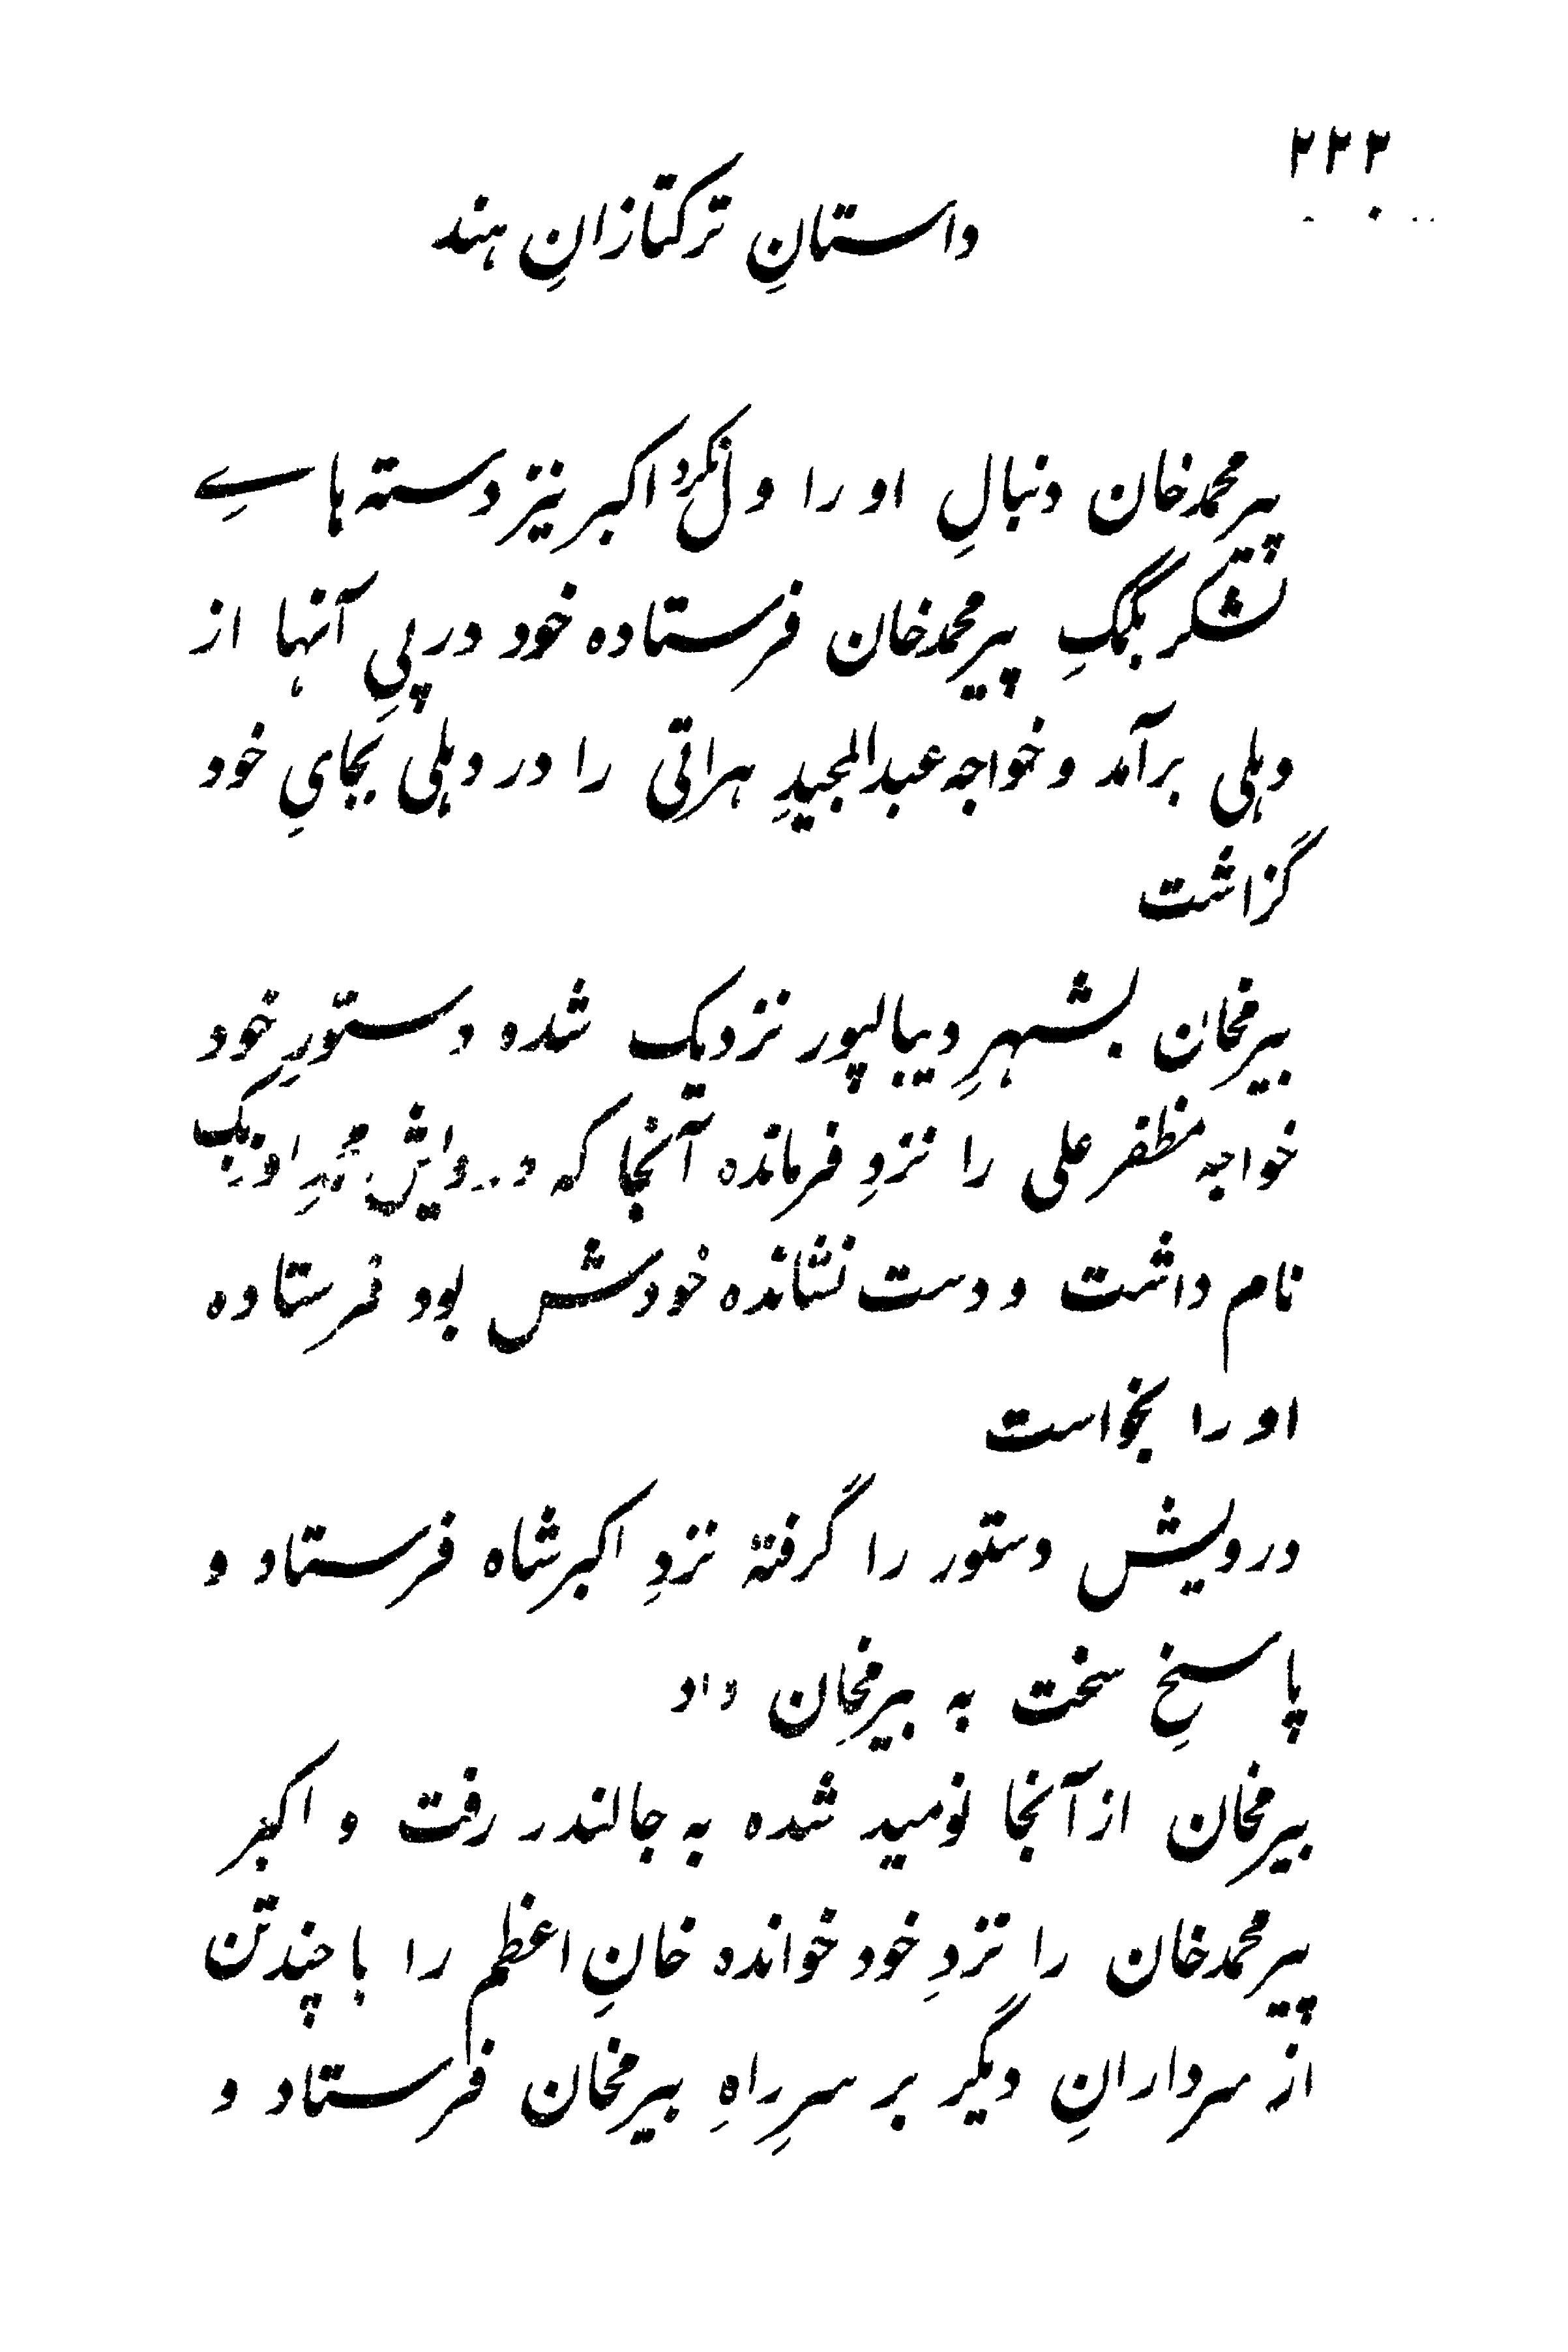 ۲۲۲
داستانِ ترکتازانِ هند
پیرمحمدخان دنبالِ او را ول نکرد اکبر نیز دسته هاے
لشکر بکمکِ پیرمحمدخان فرستاده خود در پیِ آنها از
دہلی برآمد و خواجه عبدالمجیدِ هراتی را در دہلی بجایِ خود
گزاشت
بیرمخان بشهرِ دیبالپور نزدیک شده دستورِ خود
خواجه مظفر علی را نزدِ فرمانده آنجا که درویش محمدِ اوزبک
نام داشت و دست نشانده خودش بود فرستاده
او را بخواست
درویش دستور را گرفتهٔ نزدِ اکبرشاه فرستاد و
پاسخِ سخت به بیرمخان داد
بیرمخان از آنجا نومید شده به جالندر رفت و اکبر
پیرمحمدخان را نزدِ خود خوانده خانِ اعظم را با چندتن
از سردارانِ دیگر بر سرِ راهِ بیرمخان فرستاد و